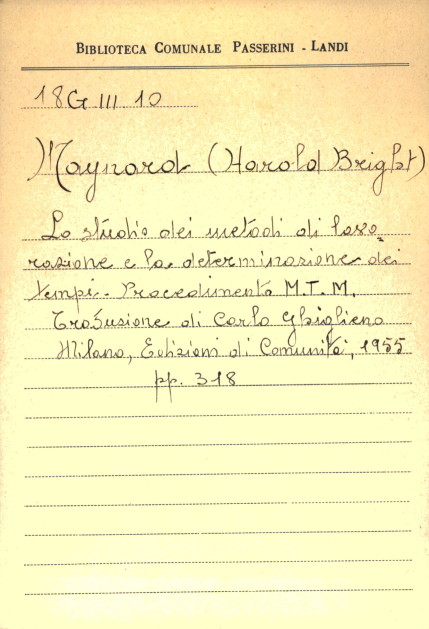 BIBLIOTECA COMUNALE PASSERINI - LANDI
18G III. 10
Maynard (Harold Bright)
Lo studio dei metodi di lavo-
razione e la determinazione dei
tempi. Procedimento M.T.M.
Traduzione di Carlo Ghiglieno
Milano, Edizioni di Comunità, 1955
pp. 318